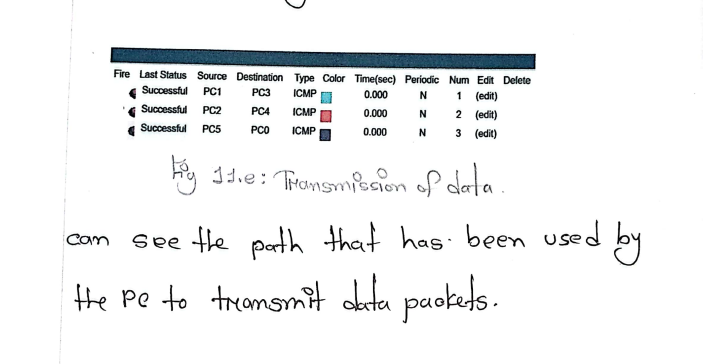 Fire Last Status Source Destination Type Color Time(sec) Periodic Num Edit Delete
Successful PC1 PC3 ICMP 0.000 N 1 (edit)
Successful PC2 PC4 ICMP 0.000 N 2 (edit)
Successful PC5 PC0 ICMP 0.000 N 3 (edit)
Fig 11.e: Transmission of data.
can see the path that has been used by
the PC to transmit data packets.